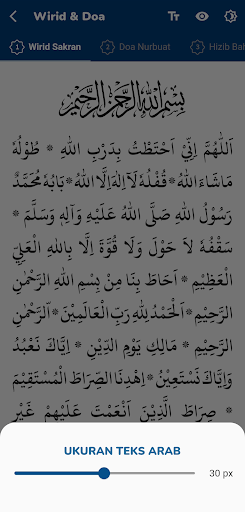 Wirid & Doa
1 Wirid Sakran 2 Doa Nurbuat 3 Hizib Bah
بِسْمِ اللهِ الرَّحْمٰنِ الرَّحِيْمِ
اَللّٰهُمَّ اِنِّيْ اَحْتَطْتُ بِدَرْبِ اللهِ * طُوْلُهُ
مَاشَاءَ اللهُ * قُفْلُهُ لَآ اِلٰهَ اِلَّا اللهُ * بَابُهُ مُحَمَّدٌ
رَسُوْلُ اللهِ صَلَّى اللهُ عَلَيْهِ وَآلِهِ وَسَلَّمَ *
سَقْفُهُ لَا حَوْلَ وَلَا قُوَّةَ اِلَّا بِاللهِ الْعَلِيِّ
الْعَظِيْمِ * اَحَاطَ بِنَا مِنْ بِسْمِ اللهِ الرَّحْمٰنِ
الرَّحِيْمِ * اَلْحَمْدُ لِلّٰهِ رَبِّ الْعَالَمِيْنَ * اَلرَّحْمٰنِ
الرَّحِيْمِ * مَالِكِ يَوْمِ الدِّيْنِ * اِيَّاكَ نَعْبُدُ
وَاِيَّاكَ نَسْتَعِيْنُ * اِهْدِنَا الصِّرَاطَ الْمُسْتَقِيْمَ
* صِرَاطَ الَّذِيْنَ اَنْعَمْتَ عَلَيْهِمْ غَيْرِ
UKURAN TEKS ARAB
30 px